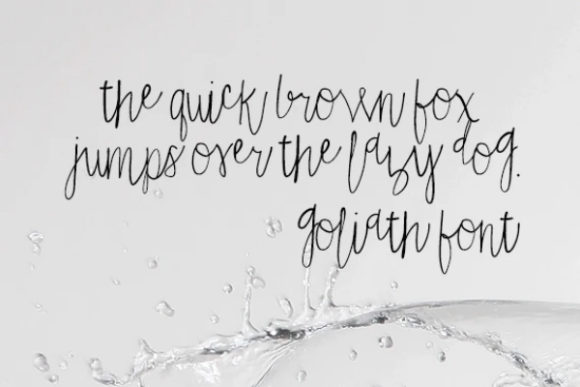 the quick brown fox
jumps over the lazy dog.
goliath font